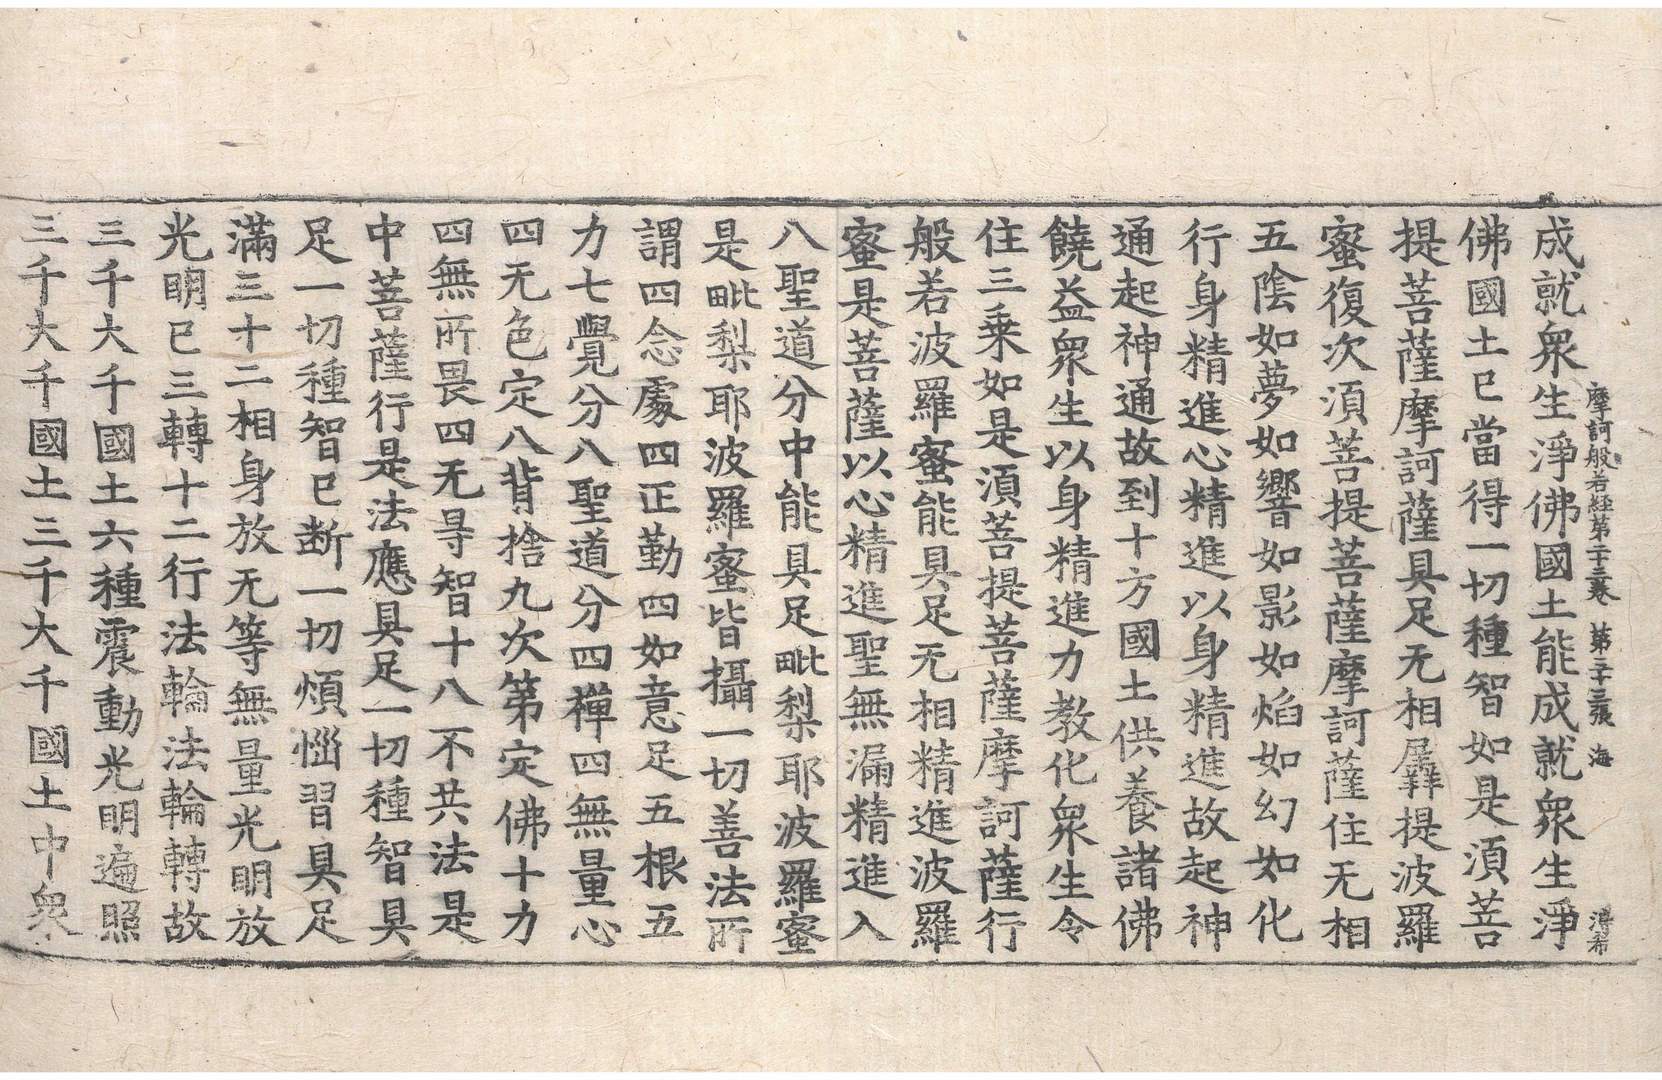 摩訶般若経第二十三卷 第二十三張 海 淂希
成就衆生淨佛國土能成就衆生淨
佛國土已當得一切種智如是湏菩
提菩薩摩訶薩具足无相羼提波羅
蜜復次湏菩提菩薩摩訶薩住无相
五陰如夢如響如影如焰如幻如化
行身精進心精進以身精進故起神
通起神通故到十方國土供養諸佛
饒益衆生以身精進力教化衆生令
住三乗如是湏菩提菩薩摩訶薩行
般若波羅蜜能具足无相精進波羅
蜜是菩薩以心精進聖無漏精進入
八聖道分中能具足毗梨耶波羅蜜
是毗梨耶波羅蜜皆攝一切善法所
謂四念處四正勤四如意足五根五
力七覺分八聖道分四禪四無量心
四无色定八背捨九次第定佛十力
四無所畏四无㝵智十八不共法是
中菩薩行是法應具足一切種智具
足一切種智已断一切煩惱習具足
滿三十二相身放无等無量光明放
光明已三轉十二行法輪法輪轉故
三千大千國土六種震動光明遍照
三千大千國土三千大千國土中衆